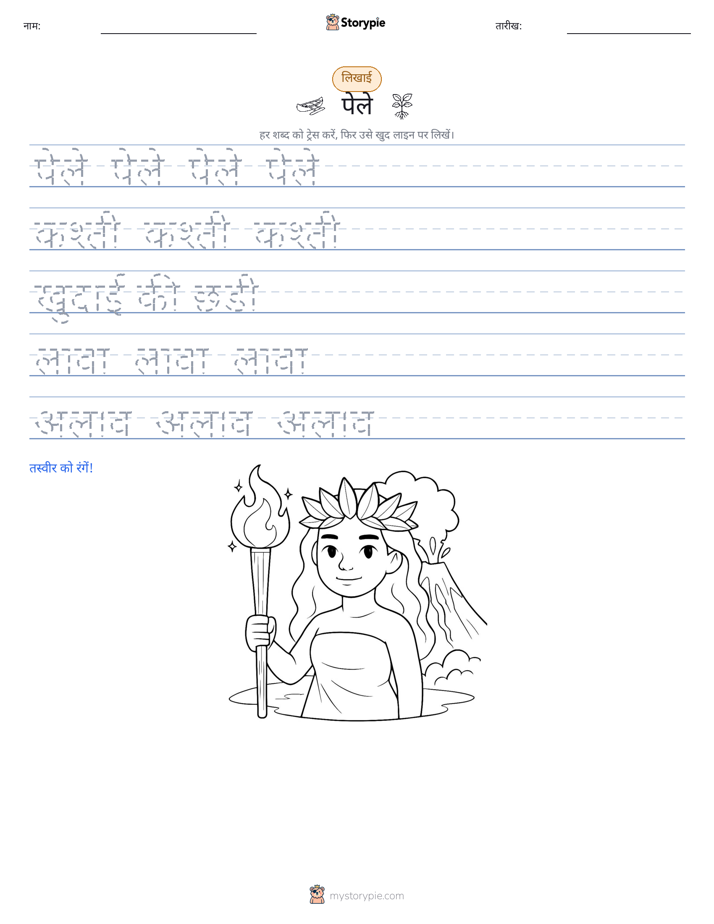 नाम:
Storypie
तारीख:
लिखाई
पेले
हर शब्द को ट्रेस करें, फिर उसे खुद लाइन पर लिखें।
पेले पेले पेले पेले
कश्ती कश्ती कश्ती
खुदाई की छड़ी
लावा लावा लावा
अलाव अलाव अलाव
तस्वीर को रंगें!
mystorypie.com